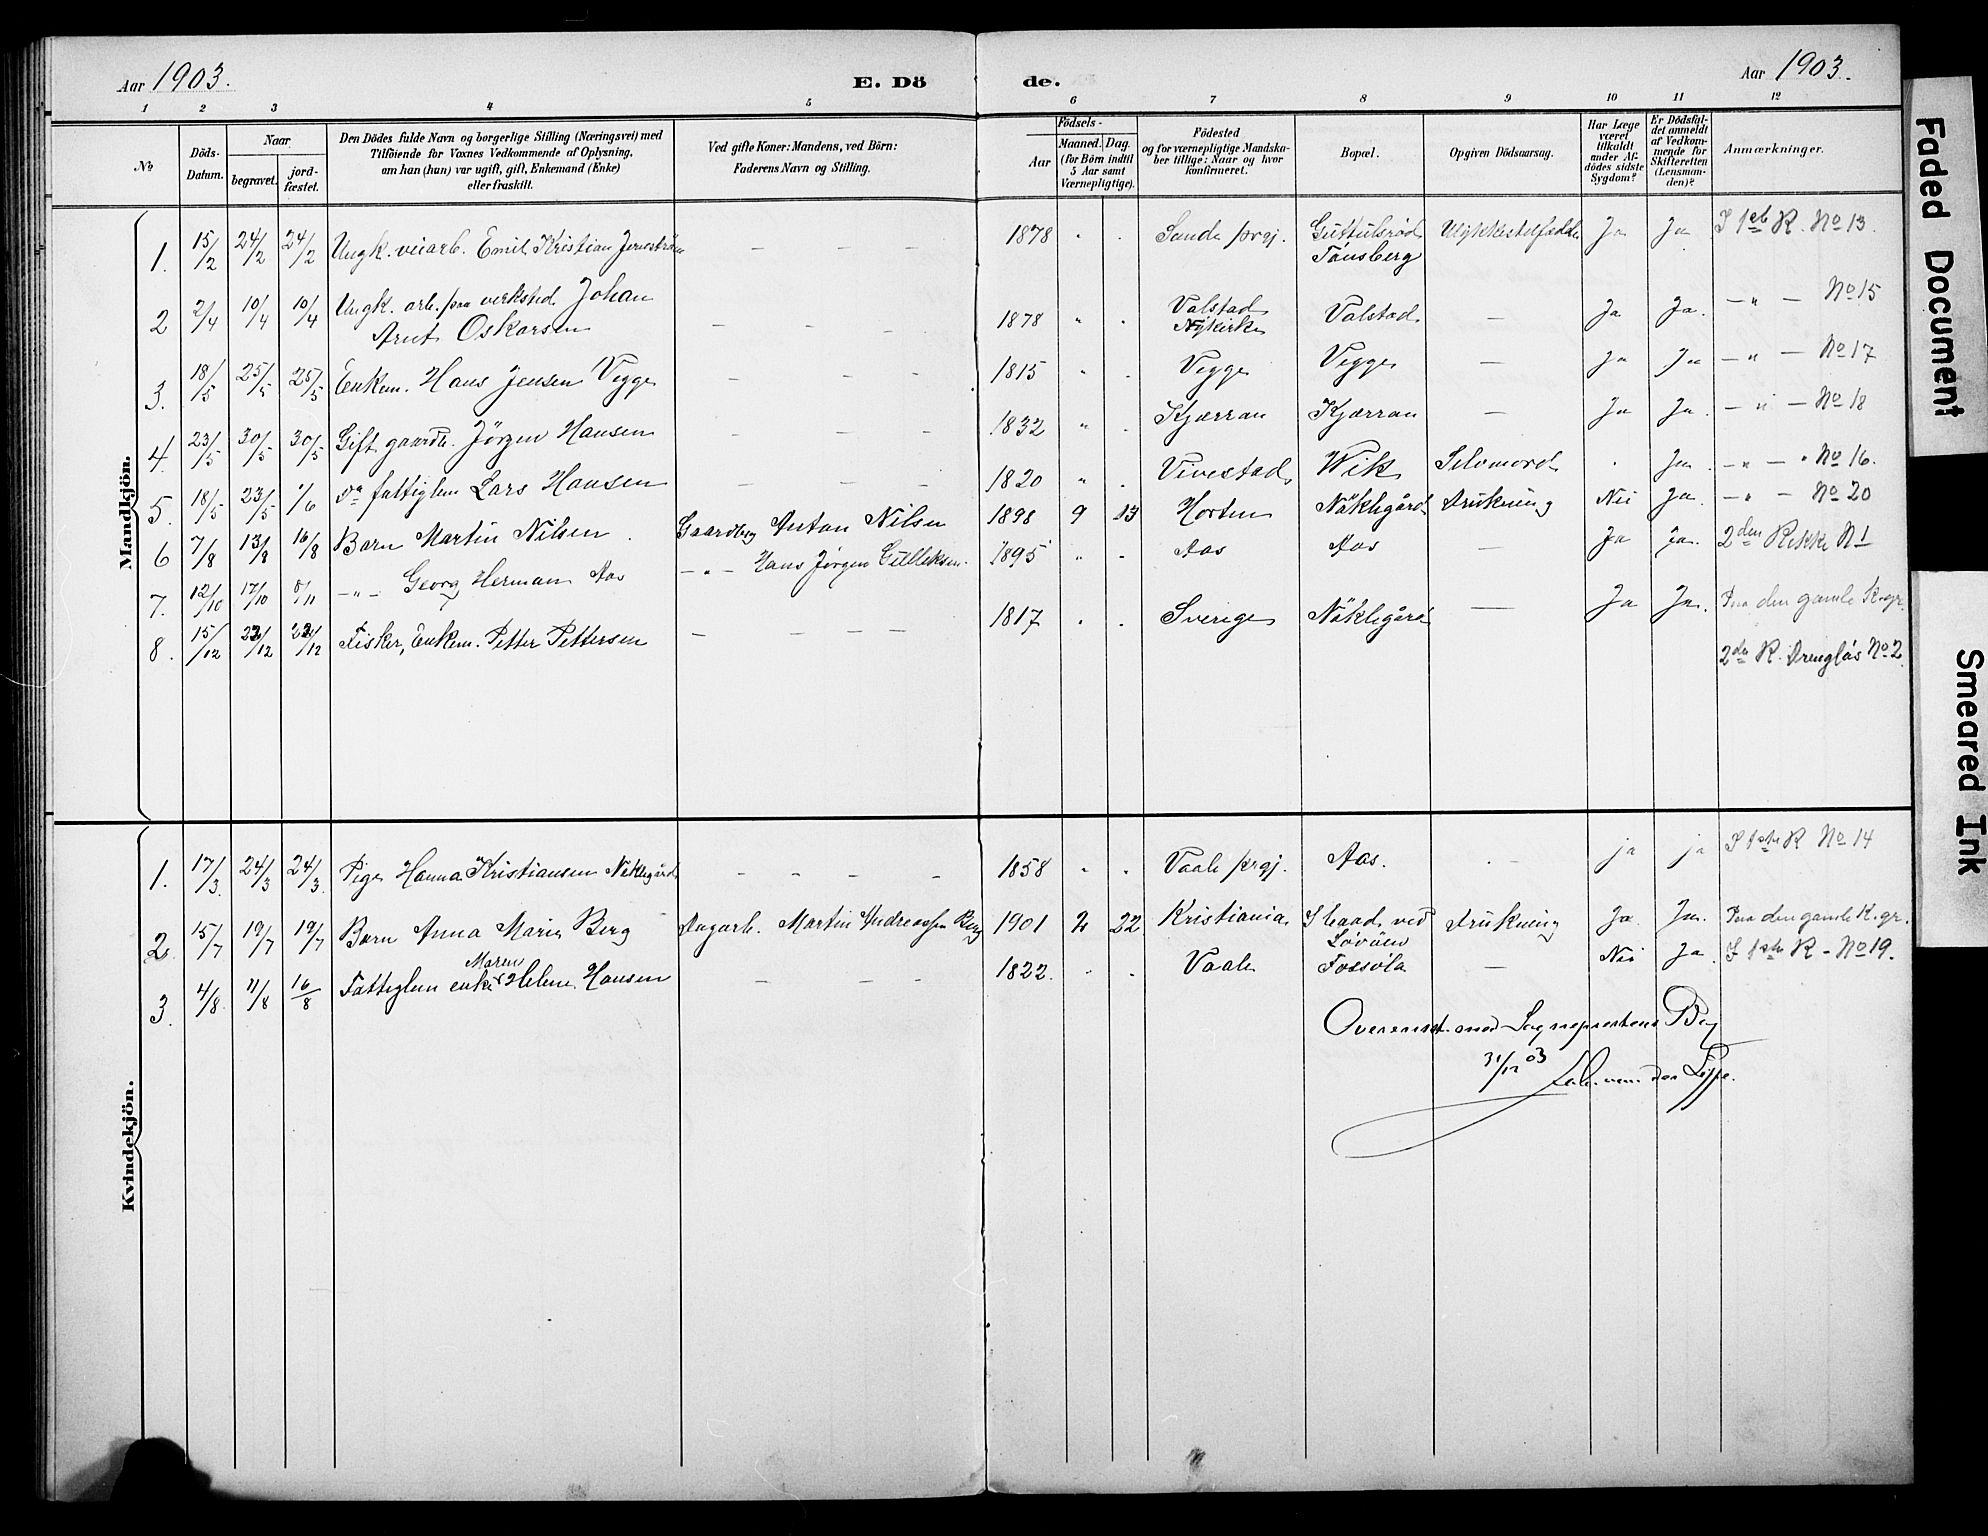 Aar 1903.
E. Dö
de.
Aar 1903.
1 2 3 4 5 6 7 8 9 10 11 12
No
Döds-Datum.
Naar
begravet.
jord-fæstet.
Den Dödes fulde Navn og borgerlige Stilling (Næringsvei) med
Tilföiende for Voxnes Vedkommende af Oplysning,
om han (hun) var ugift, gift, Enkemand (Enke)
eller fraskilt.
Ved gifte Koner: Mandens, ved Börn:
Faderens Navn og Stilling.
Födsels-
Aar
Maaned. Dag.
(for Börn indtil
5 Aar samt
Værnepligtige).
Födested
og for værnepligtige Mandska-
ber tillige: Naar og hvor
konfirmeret.
Bopæl.
Opgiven Dödsaarsag.
Har Læge
været
tilkaldt
under Af-
dödes sidste
Sygdom?
Er Dödsfal-
det anmeldt
af Vedkom-
mende for
Skifteretten
(Lensman-
den)?
Anmærkninger.
Mandkjön.
1. 15/2 24/2 24/2 Ungk. veiarb. Emil Kristian — — — 1878 " . Sande prgj. Guttulsröd Tönsberg Ulykkestilfælde Ja Ja I 1ste R. No 13.
2 2/4 10/4 10/4 Ungk. arb. paa verksted Johan Arnt Oskarsen — — — 1878 " . Valstad Nykirke Valstad — Ja Ja. — " — No 15
3. 18/5 25/5 25/5 Enkem. Hans Jensen Vegge — — — 1815 " . Vegge Vegge — Ja Ja — " — No 17
4. 23/5 30/5 30/5 Gift gaardb. Jørgen Hansen — — — 1832 " . Kjærran Kjærran — Ja Ja. — " — No 18
5. 18/5 23/5 1/6 Do fattiglem Lars Hansen — — — 1820 " . Vivestad Wik Selvmord . Ja. — " — No 16.
6 7/8 13/8 16/8 Barn Martin Nilsen Gaardbr Anton Nilsen 1898 9 13 Horten Näklegård Drukning Nei Ja. — " — No 20
7. 12/10 17/10 8/11 — " — Georg Herman Aas — " — Hans Jørgen Gulleksen. 1895 " . Aas Aas — Ja Ja. 2den Rekke N 1
8. 15/12 22/12 22/12 Fisker, Enkem. Petter Pettersen — — — — 1817 . . Sverige Näklegård — Ja Ja. Paa den gamle K.gr.
2den R. No 2.
Kvindekjön.
1. 17/3. 24/3 24/3. Pige Hanna Kristiansen Näklegård — — — — 1858 " . Vaale prgj. Aas. — ja ja I 1ste R No 14
2. 15/7 19/7 19/7 Barn Anna Marie Berg Dagarb. Martin Andreassen Berg 1901 2 22 Kristiania I baad ved Lövöen Drukning Ja Ja. Paa den gamle K.gr.
3. 4/8. 11/8 16/8 Fattiglem enke Maren Helene Hansen — — — 1822. . . Vaale Fossöla — Nei Ja. I 1ste R - No 19.
Overenst. med Sogneprestens Bog
31/12 03
von der Lippe.
Faded Document
Smeared Ink